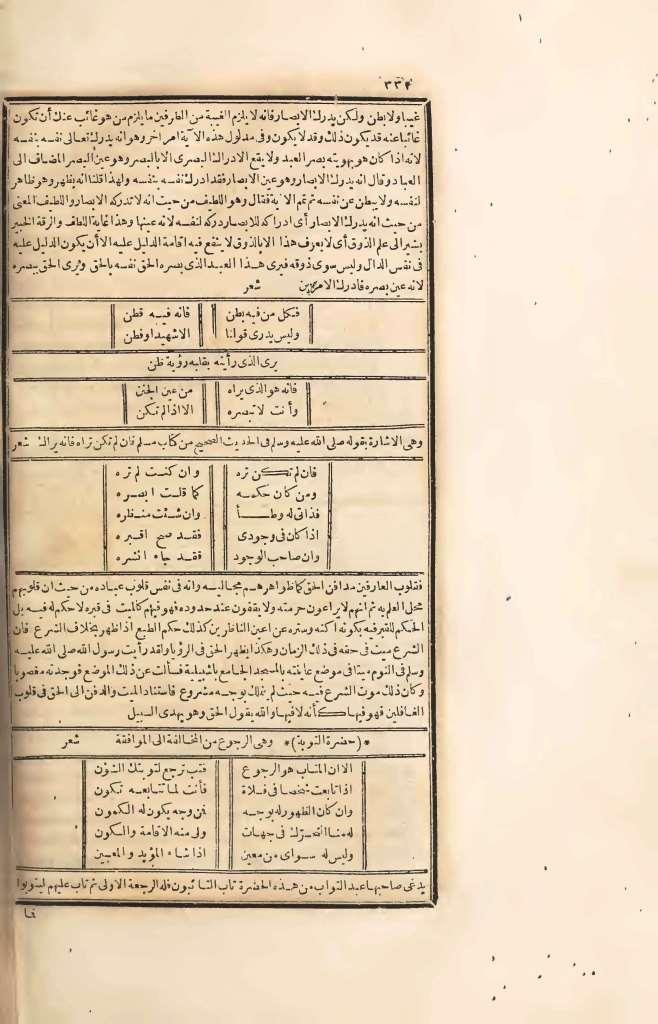 ٣٣٤
غيبا ولا بطن ولكن يدرك الابصار فانه لا يلزم الغيبة من الطرفين ما يلزم من هو غائب عنك أن تكون
غائبا عنه قد يكون ذلك وقد لا يكون وفى مدلول هذه الآية أمر آخر وهو انه يدرك تعالى نفسه بنفسه
لانه اذا كان هو بهويته بصر العبد ولا يقع الادراك البصرى الا بالبصر وهو عين البصر المضاف الى
العباد وقال انه يدرك الابصار وهو عين الابصار فقد ادرك نفسه بنفسه ولهذا قلنا انه يظهر وهو ظاهر
لنفسه ولا يبطن عن نفسه ثم تمم الآية فقال وهو اللطيف من حيث انه لا تدركه الابصار واللطيف المعنى
من حيث انه يدرك الابصار أى ادراكه للابصار دركه لنفسه لانه عينها وهذا غاية اللطف والرقة الخبير
يشير الى علم الذوق أى لا يعرف هذا الا بالذوق لا ينفع فيه اقامة الدليل عليه الا أن يكون الدليل عليه
فى نفس الدال وليس سوى ذوقه فيرى هذا العبد الذى بصره الحق نفسه بالحق ويرى الحق ببصره
لانه عين بصره فادرك الامرين شعر
فكل من فيه بطن فانه فيه قطن
وليس يدرى قولنا الا شهيد او فطن
يرى الذى رأيته بقلبه رؤية ظن
فانه هو الذى يراه من عين الجنن
وأنت لا تبصره الا اذا لم تكن
وهى الاشارة بقوله صلى الله عليه وسلم فى الحديث الصحيح من كتاب مسلم فان لم تكن تراه فانه يراك شعر
فان لم تكن تره وان كنت لم تره
ومن كان حكمه كما قلت ابصره
فذاتى له وطأ وان شئت منظره
اذا كان فى وجودى فقد صح اقبره
وان صاحب الوجود فقد جاء انشره
فقلوب العارفين مدافن الحق كما ظواهرهم مجاليه وانه فى نفس قلوب عباده من حيث ان قلوبهم
محلى العلم به ثم انهم لا يراعون حرمته ولا يقفون عند حدوده فهو فيهم كالميت فى قبره لا حكم له فيه بل
الحكم للقبر فيه بكونه اكنه وستره عن اعين الناظرين كذلك حكم الطبع اذا ظهر بخلاف الشرع فان
الشرع ميت فى حقه فى ذلك الزمان وهكذا يظهر الحق فى الرؤيا ولقد رأيت رسول الله صلى الله عليه
وسلم فى النوم ميتا فى موضع عاينته بالمسجد الجامع باشبيلية فسألت عن ذلك الموضع فوجدته مغصوبا
وكان ذلك موت الشرع فيه حيث لم يتملك بوجه مشروع فاستناد الميت والدفن الى الحق فى قلوب
الغافلين فهو فيها كأنه لا فيها والله يقول الحق وهو يهدى السبيل
*(حضرة التوبة)* وهى الرجوع من المخالفة الى الموافقة شعر
الا ان المتاب هو الرجوع فتب ترجع لتوبتك الشؤن
اذا تابعت شخصا فى فلاة فأنت لما تتابعه تكون
وان كان الظهور له بوجه فمن وجه يكون له الكمون
له منا التحرك فى جهات ولى منه الاقامة والسكون
وليس له سواى من معين اذا شاء المؤيد والمعين
يدعى صاحبها عبد التواب من هذه الحضرة تاب التائبون فله الرجعة الاولى ثم تاب عليهم ليتوبوا
فما